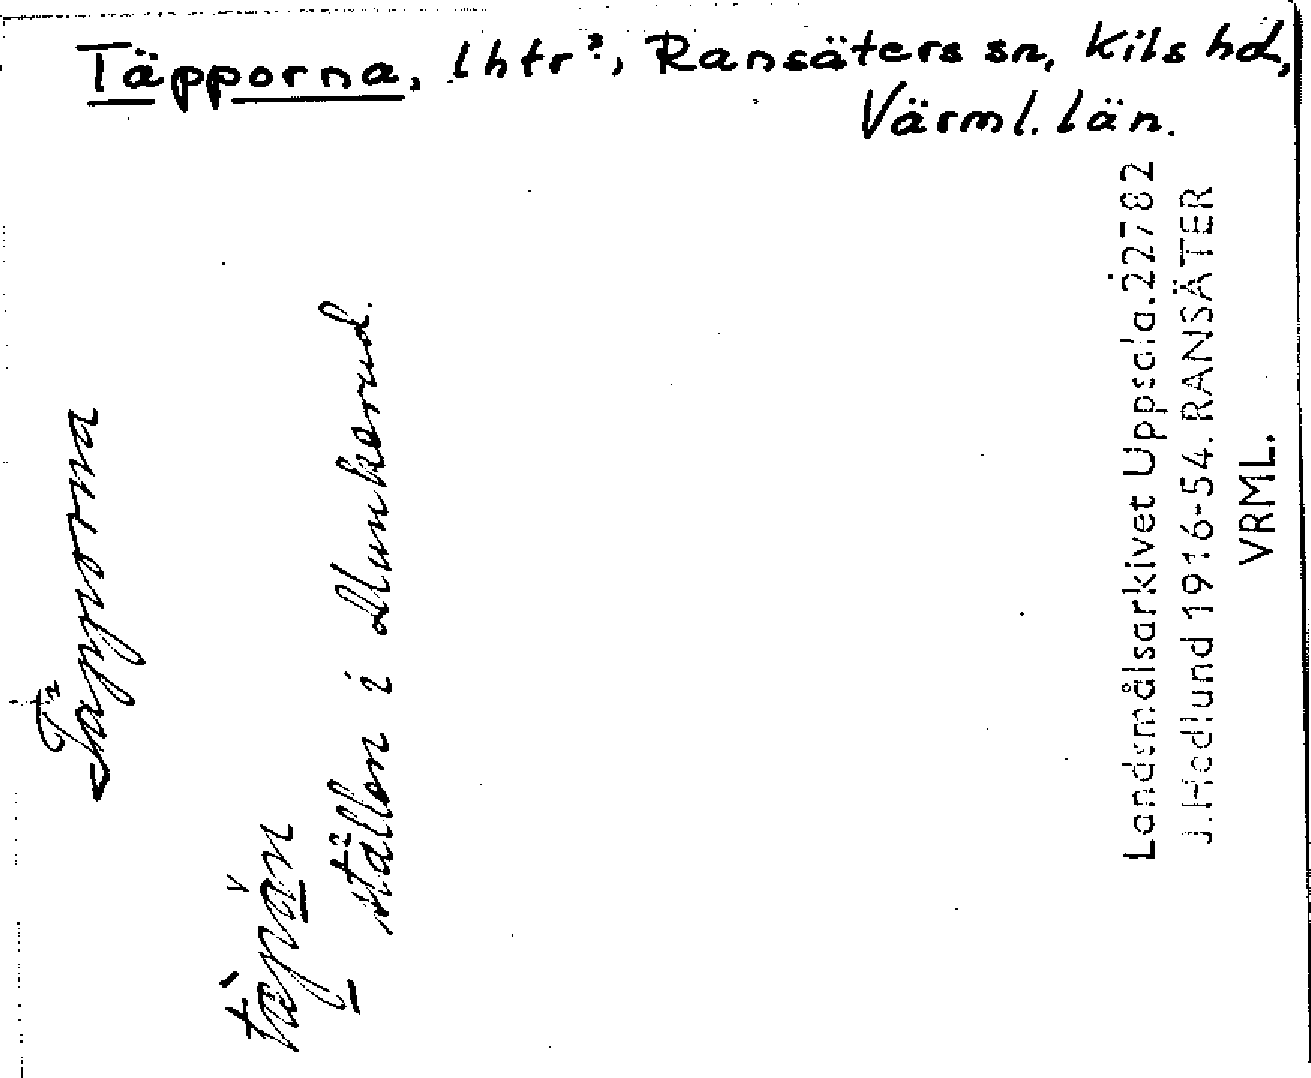 Täpporna, lhtr?, Ransäters sn, Kils hd,
Värml. län.
Täpporna
ställen i Munkerud.
Landsmålsarkivet Uppsala. 22782
J. Hedlund 1916-54. RANSÄTER
VRML.